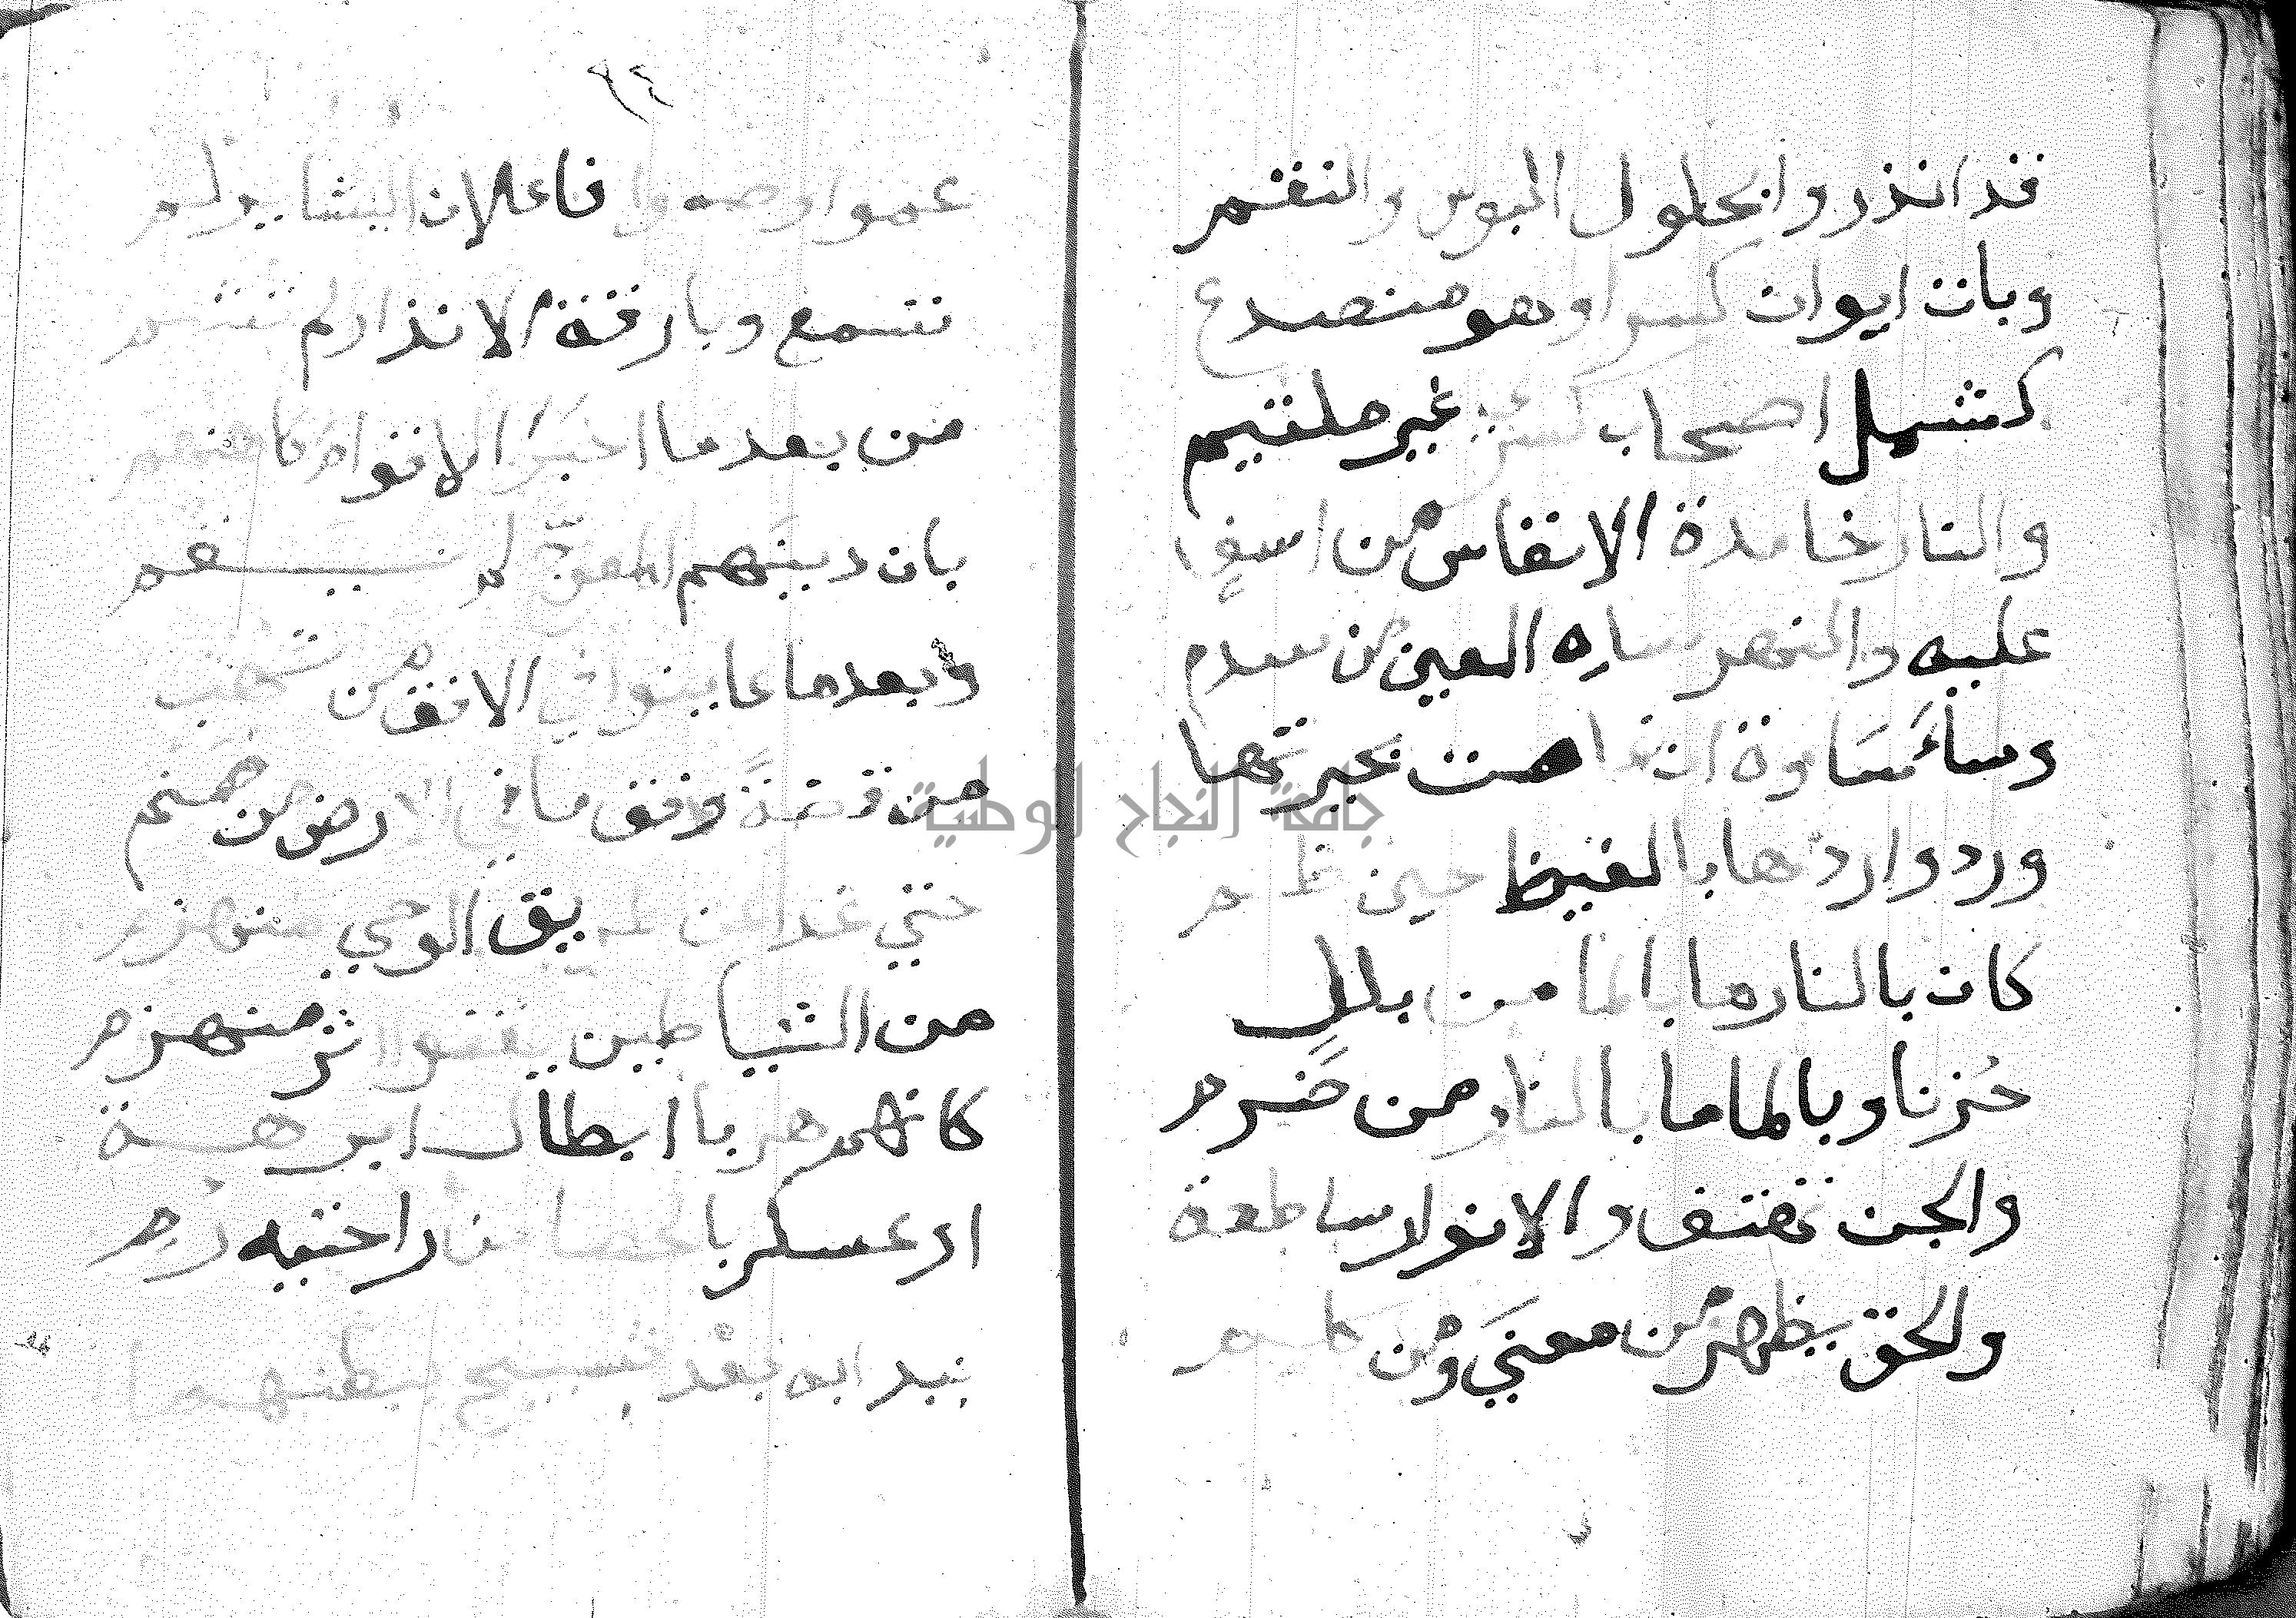 قد انذروا بحلول البوس والنقم
وبات ايوان كسرا وهو منصدع
كشمل اصحاب كسرى غير ملتيم
والنار خامدة الانفاس من اسف
عليه والنهر ساه العين من سدم
وساءَ سَاوة ان غاضت بحيرتها
ورد واردها بالغيظ حين ظم
كان بالنار ما بالما من بلل
حُزنا وبالما ما بالنار من ضَرم
والجن تهتف والانوار ساطعة
والحق يظهر من معنيَ ومن كلم
جامعة النجاح الوطنية
٢٤
عموا وصموا فاعلان البشاير لم
تسمع وبارقة الانذار لم تشم
من بعد ما اخبَرَ الاقوام كاهنهم
بان دينَهم المعوجّ لم يقم
وبعد ما عاينوا في الافق من شهب
من قضةً وفق ما في الارض من صَنم
حتي غدا عن طريق الوحي منهزم
من الشياطين يقفوا اثر منهزم
كانهم هربا ابطال ابرهة
او عسكر بالحصا من راحتيه رُم
نبدا به بعد تسبيح ببطنهما